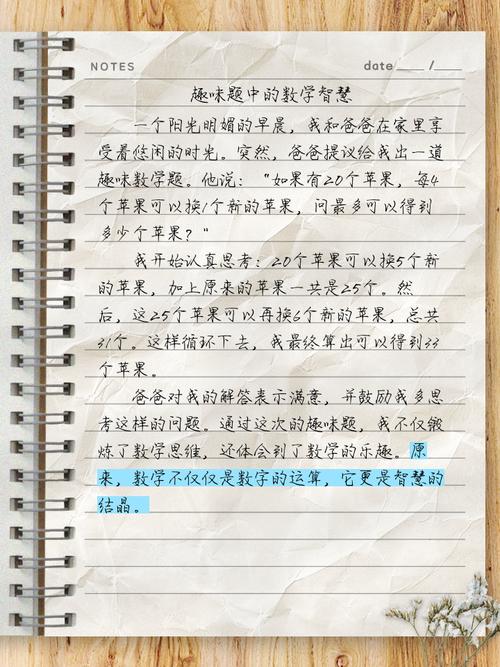 NOTES date____ /____
趣味题中的数学智慧
一个阳光明媚的早晨，我和爸爸在家里享
受着悠闲的时光。突然，爸爸提议给我出一道
趣味数学题。他说：“如果有20个苹果，每4
个苹果可以换1个新的苹果，问最多可以得到
多少个苹果？”
我开始认真思考：20个苹果可以换5个新
的苹果，加上原来的苹果一共是25个。然
后，这25个苹果可以再换6个新的苹果，总共
31个。这样循环下去，我最终算出可以得到33
个苹果。
爸爸对我的解答表示满意，并鼓励我多思
考这样的问题。通过这次的趣味题，我不仅锻
炼了数学思维，还体会到了数学的乐趣。原
来，数学不仅仅是数字的运算，它更是智慧的
结晶。